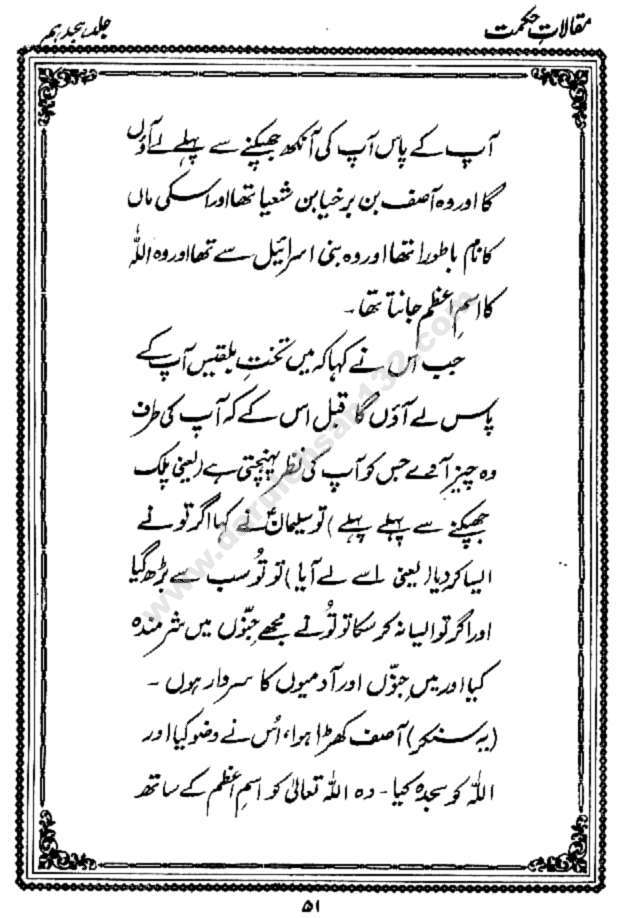 مقالاتِ حکمت
جلد ہیجدہم
آپ کے پاس آپ کی آنکھ جھپکنے سے پہلے لے آؤں
گا اور وہ آصف بن برخیا بن شعیا تھا اور اسکی ماں
کا نام باطورا تھا اور وہ بنی اسرائیل سے تھا اور وہ اللہ
کا اسمِ اعظم جانتا تھا۔
جب اس نے کہا کہ میں تختِ بلقیس آپ کے
پاس لے آؤں گا قبل اس کے کہ آپ کی طرف
وہ چیز آئے جس کو آپ کی نظر پہنچتی ہے (یعنی پلک
جھپکنے سے پہلے پہلے) تو سلیمانؑ نے کہا اگر تو نے
ایسا کر دیا (یعنی اسے لے آیا) تو تُو سب سے بڑھ گیا
اور اگر تو ایسا نہ کر سکا تو تُو نے مجھے جنّوں میں شرمندہ
کیا اور میں جنّوں اور آدمیوں کا سردار ہوں۔
(یہ سنکر) آصف کھڑا ہوا، اُس نے وضو کیا اور
اللہ کو سجدہ کیا۔ وہ اللہ تعالیٰ کو اسمِ اعظم کے ساتھ
۵۱
www.darulehsan132.com